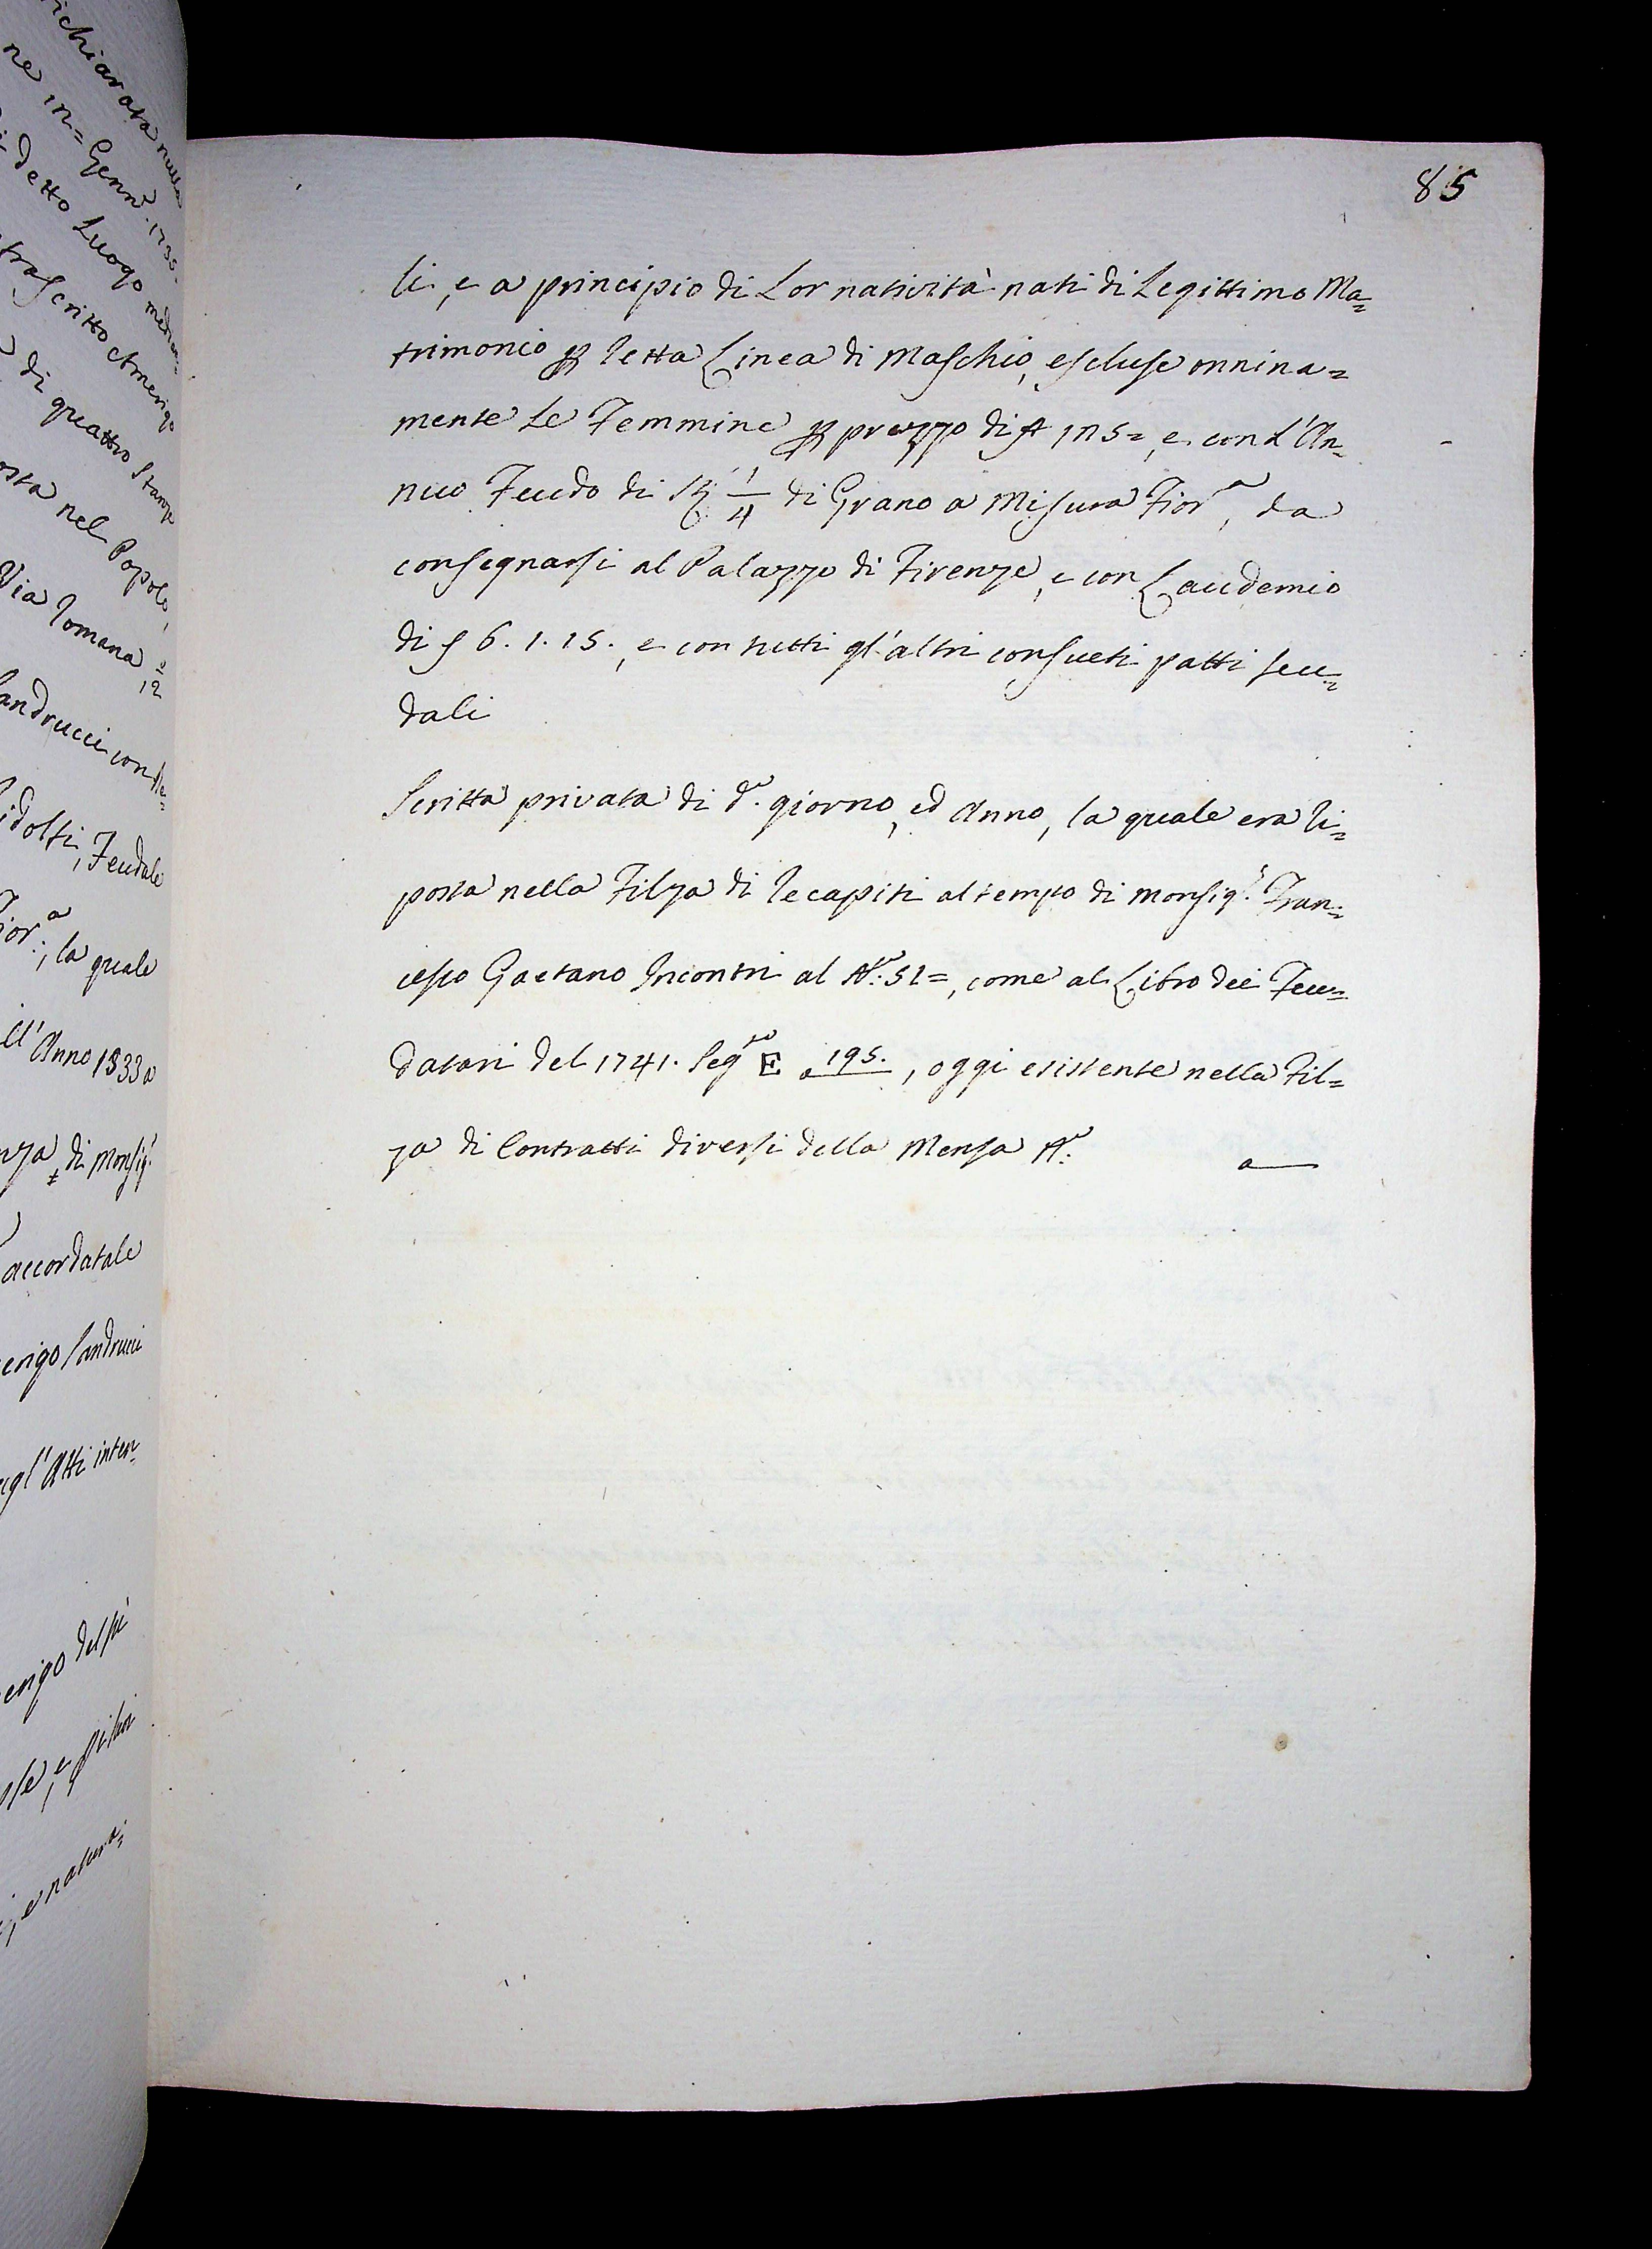 85
li, e a principio di Lor natività nati di Legittimo Ma=
trimonio per retta Linea di Maschio, escluse onnina=
mente Le Femmine per prezzo di 125=, e con L'An=
nuo Feudo di 1/4 di Grano a Misura Fior.a, da
consegnarsi al Palazzo di Firenze, e con Laudemio
di 6. 1. 15., e con tutti gl'altri consueti patti feu=
dali
Scritta privata di d.o giorno, ed Anno, la quale era ri=
posta nella Filza di recapiti al tempo di Monsig.r Fran=
cesco Gaetano Incontri al N.o: 51=, come al Libro dei Feu=
datari del 1741. Seg.to E a 195., oggi esistente nella Fil=
za di Contratti diversi della Mensa A.
a
ne 12= Genn.o 1735.
detto Luogo
di quattro Stanze
nel Popolo,
Via Romana
andrucci con
idolfi, Feudale
ior.a:, la quale
ll'Anno 1333 a
nza di Monsig.r
accordatale
erigo Sandrucci
egl'Atti inter=
erigo del
, e natura=